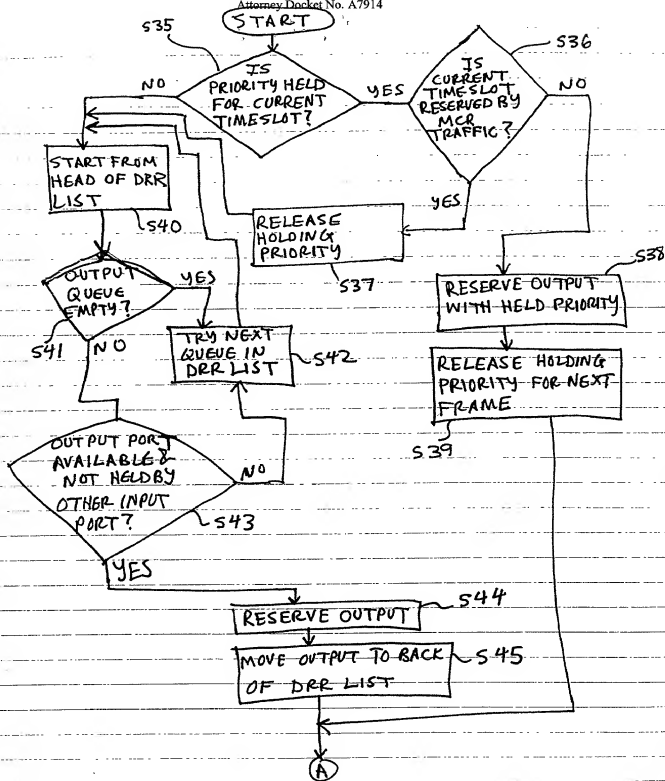 Attorney Docket No. A7914
START
S35
IS
PRIORITY HELD
FOR CURRENT
TIMESLOT?
NO
YES
S36
IS
CURRENT
TIMESLOT
RESERVED BY
MCR
TRAFFIC?
NO
YES
START FROM
HEAD OF DRR
LIST
S40
RELEASE
HOLDING
PRIORITY
S37
S38
RESERVE OUTPUT
WITH HELD PRIORITY
OUTPUT
QUEUE
EMPTY?
YES
S41
NO
TRY NEXT
QUEUE IN
DRR LIST
S42
RELEASE HOLDING
PRIORITY FOR NEXT
FRAME
S39
OUTPUT PORT
AVAILABLE &
NOT HELD BY
OTHER INPUT
PORT?
NO
S43
YES
RESERVE OUTPUT
S44
MOVE OUTPUT TO BACK
OF DRR LIST
S45
A